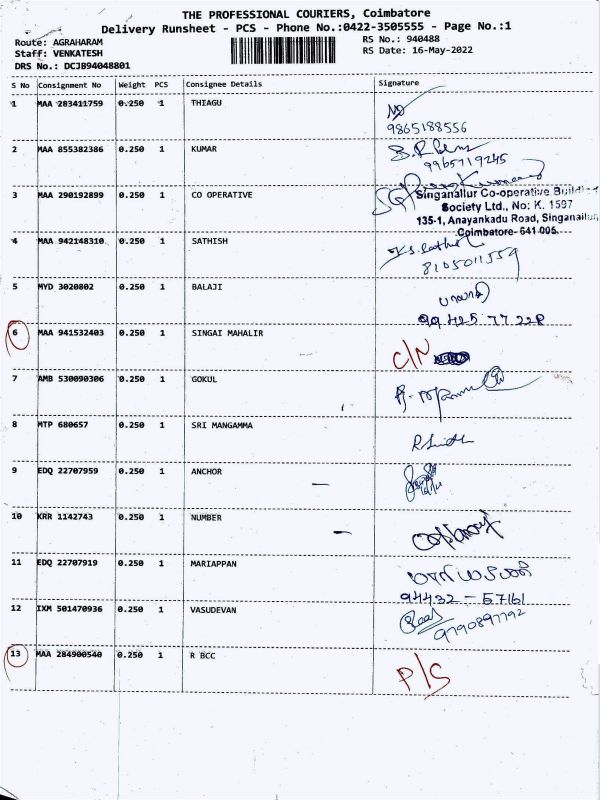 THE PROFESSIONAL COURIERS, Coimbatore
Delivery Runsheet - PCS - Phone No.:0422-3505555 - Page No.:1
Route: AGRAHARAM
RS No.: 940488
Staff: VENKATESH
RS Date: 16-May-2022
DRS No.: DCJB94048801
S No Consignment No Weight PCS Consignee Details Signature
1 MAA 283411759 0.250 1 THIAGU
9865188556
2 MAA 855382386 0.250 1 KUMAR
9965719245
3 MAA 290192899 0.250 1 CO OPERATIVE
Singanallur Co-operative Building
Society Ltd., No: K. 1597
135-1, Anayankadu Road, Singanallur,
Coimbatore- 641 005.
4 MAA 942148310 0.250 1 SATHISH
8105011559
5 MYD 3020802 0.250 1 BALAJI
99425 77228
6 MAA 941532403 0.250 1 SINGAI MAHALIR C/N
7 AMB 530090306 0.250 1 GOKUL
8 MTP 680657 0.250 1 SRI MANGAMMA
9 EDQ 22707959 0.250 1 ANCHOR
10 KRR 1142743 0.250 1 NUMBER
11 EDQ 22707919 0.250 1 MARIAPPAN
94432 - 57161
12 IXM 501470936 0.250 1 VASUDEVAN
9790897792
13 MAA 284900540 0.250 1 R BCC P/S